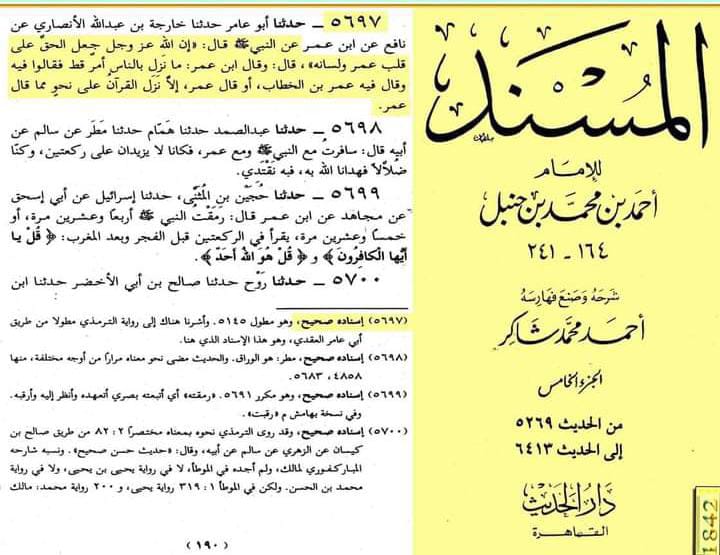 ٥٦٩٧ ــ حدثنا أبو عامر حدثنا خارجة بن عبدالله الأنصاري عن
نافع عن ابن عمر عن النبي ﷺ قال: «إن الله عز وجل جعل الحق على
قلب عمر ولسانه»، قال: وقال ابن عمر: ما نزل بالناس أمر قط فقالوا فيه
وقال فيه عمر بن الخطاب، أو قال عمر، إلاّ نزل القرآن على نحو مما قال
عمر.
٥٦٩٨ ــ حدثنا عبدالصمد حدثنا همّام حدثنا مطَر عن سالم عن
أبيه قال: سافرت مع النبي ﷺ ومع عمر، فكانا لا يزيدان على ركعتين، وكنّا
ضلالاً فهدانا الله به، فبه نَقْتَدي.
٥٦٩٩ ــ حدثنا حُجَيْن بن المُثَنّى، حدثنا إسرائيل عن أبي إسحق
عن مجاهد عن ابن عمر قال: رمَقْت النبي ﷺ أربعًا وعشرين مرة، أو
خمسًا وعشرين مرة، يقرأ في الركعتين قبل الفجر وبعد المغرب: ﴿ قُلْ يا
أيها الكافِرُونَ ﴾ و﴿ قُلْ هُوَ اللهُ أَحَدٌ ﴾.
٥٧٠٠ ــ حدثنا رَوْح حدثنا صالح بن أبي الأخضر حدثنا ابن
(٥٦٩٧) إسناده صحيح، وهو مطول ٥١٤٥. وأشرنا هناك إلى رواية الترمذي مطولا من طريق
أبي عامر العقدي، وهو هذا الإسناد الذي هنا.
(٥٦٩٨) إسناده صحيح، مطر: هو الوراق. والحديث مضى نحو معناه مرارًا من أوجه مختلفة، منها
٤٨٥٨، ٥٦٨٣.
(٥٦٩٩) إسناده صحيح، وهو مكرر ٥٦٩١. «رمقته» أي أتبعته بصري أتعهده وأنظر إليه وأرقبه.
وفي نسخة بهامش م «رقبت».
(٥٧٠٠) إسناده صحيح، وقد روى الترمذي نحوه بمعناه مختصرًا ٢: ٨٢ من طريق صالح بن
كيسان عن الزهري عن سالم عن أبيه، وقال: «حديث حسن صحيح». ونسبه شارحه
المباركفوري لمالك، ولم أجده في الموطأ، لا في رواية يحيى بن يحيى، ولا في رواية
محمد بن الحسن. ولكن في الموطأ ١: ٣١٩ رواية يحيى، و ٢٠٠ رواية محمد: مالك
(١٩٠)
المسند
للإمام
أحمد بن محمد بن حنبل
١٦٤ ـ ٢٤١
شرحه وصنع فهارسه
أحمد محمد شاكر
الجزء الخامس
من الحديث ٥٢٦٩
إلى الحديث ٦٤١٣
دار الحديث
القاهرة
1842